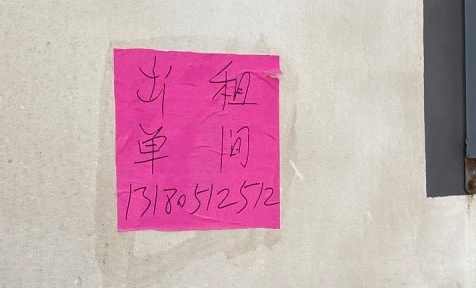 出租
单间
13180512512